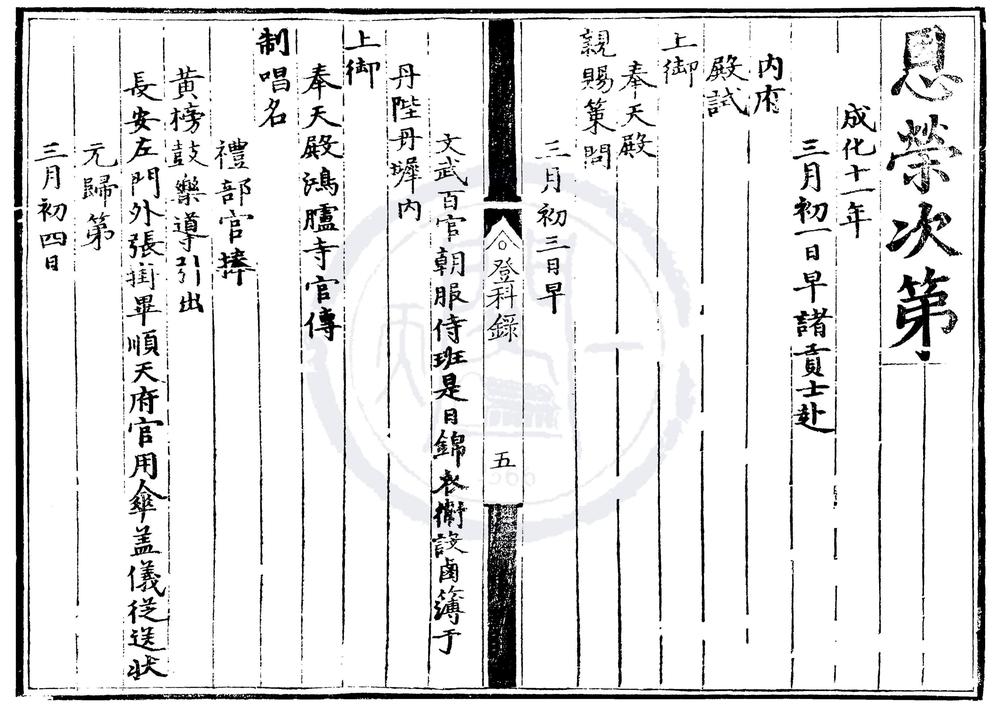 恩榮次第
成化十一年
三月初一日早諸貢士赴
內府
殿試
上御
奉天殿
親賜策問
三月初三日早
登科錄
五
文武百官朝服侍班是日錦衣衛設鹵簿于
丹陛丹墀內
上御
奉天殿鴻臚寺官傳
制唱名
禮部官捧
黃榜鼓樂導引出
長安左門外張掛畢順天府官用傘盖儀從送狀
元歸第
三月初四日